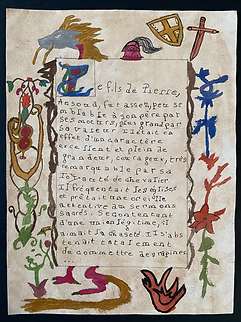 Le fils de Pierre,
Ansoud, fut assez peu se
mblable à son père par
ses mœurs, plus grand par
sa valeur il était en
effet d'un caractère
excellent et plein de
grandeur, courageux, très
remarquable par sa
loyauté de chevalier
Il fréquentait les églises
et prêtait une oreille
attentive au sermons
sacrés. Se contentant
d'une union légitime, il
aimait la chasteté. Il s'abs
tenait totalement
de commettre des rapines